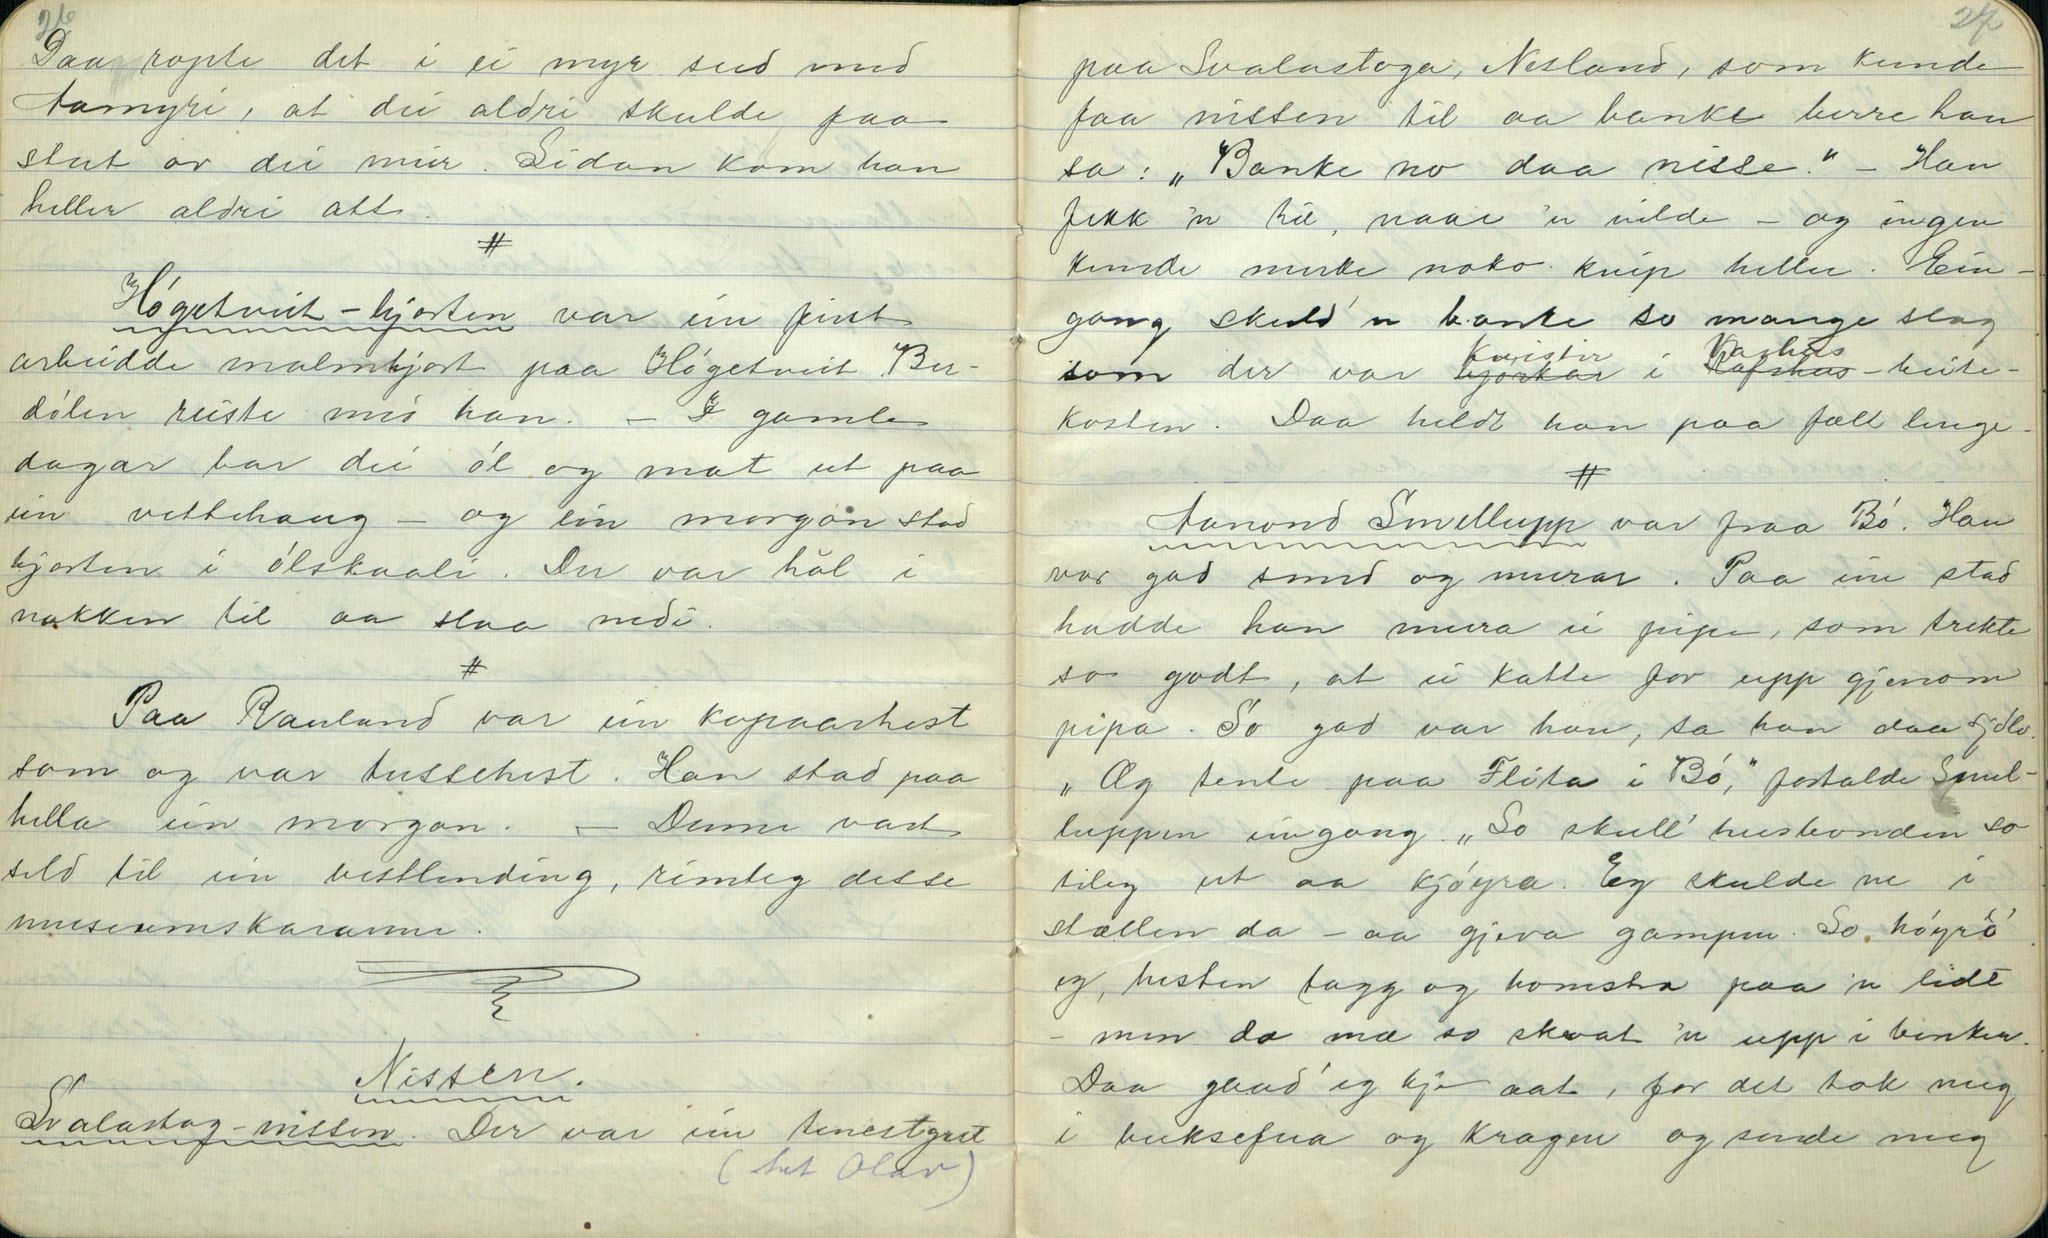 26
Daa ropte det i ei myr sud med
Aamyri, at dei aldri skulde faa
stut av dei meir. Sidan kom han
heller aldri att.
#
Høgetveit-hjorten var ein fint
arbeidde malmhjort paa Høgetveit. Ber-
dølen reiste med han. – I gamle
dagar bar dei øl og mat ut paa
ein vettehaug – og ein morgon stod
hjorten i ølskaali. Der var hål i
nakken til aa slaa nedi.
#
Paa Rauland var ein koparhest
som og var tussehest. Han stod paa
hella ein morgon. – Denne vart
seld til ein vestlending, rimleg desse
museumskarane.
Nissen.
Svalastog-nissen. Der var ein tenestgut
(het Olav)
27
paa Svalastoga, Nesland, som kunde
faa nissen til aa banke berre han
sa: „Banke no daa nisse." – Han
fekk 'n til, naar 'n vilde – og ingen
kunde merke noko knip heller. Ein-
gong skuld 'n banke so mange slag
som der var bjørkar kvister i Vashus-beite-
kosten. Daa heldt han paa fælt lenge.
#
Aanond Smellupp var fraa Bø. Han
var god smed og murar. Paa ein stad
hadde han mura ei pipe, som trekte
so godt, at ei katte for upp gjenom
pipa. So god var han, sa han daa sjølv.
„Æg tente paa Fleta i Bø," fortalde Smel-
luppen eingong. „So skull' husbonden so
tileg ut aa kjøyra. Eg skulde ne i
stallen da – aa gjeva gampen. So høyrd
eg, hesten togg og homstra paa 'n lidt
– men da mæ so skvat 'n upp i benken.
Daa gaad' eg kje aat, for det tok meg
i buksefua og kragen og sende meg